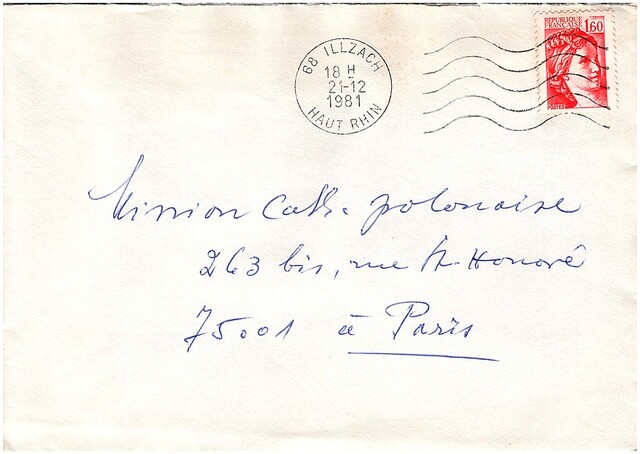 68 ILLZACH
18 H
21-12
1981
HAUT RHIN
REPUBLIQUE
FRANÇAISE 1,60
POSTES
Mission Cath. polonaise
263 bis, rue St-Honoré
75001 à Paris